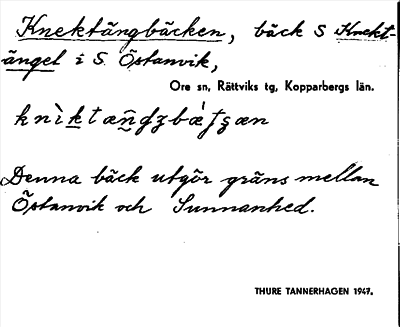 Knektängbäcken, bäck S Knekt-
ängel i S. Östanvik,
Ore sn, Rättviks tg, Kopparbergs län.
Denna bäck utgör gräns mellan
Östanvik och Sunnanhed.
THURE TANNERHAGEN 1947.